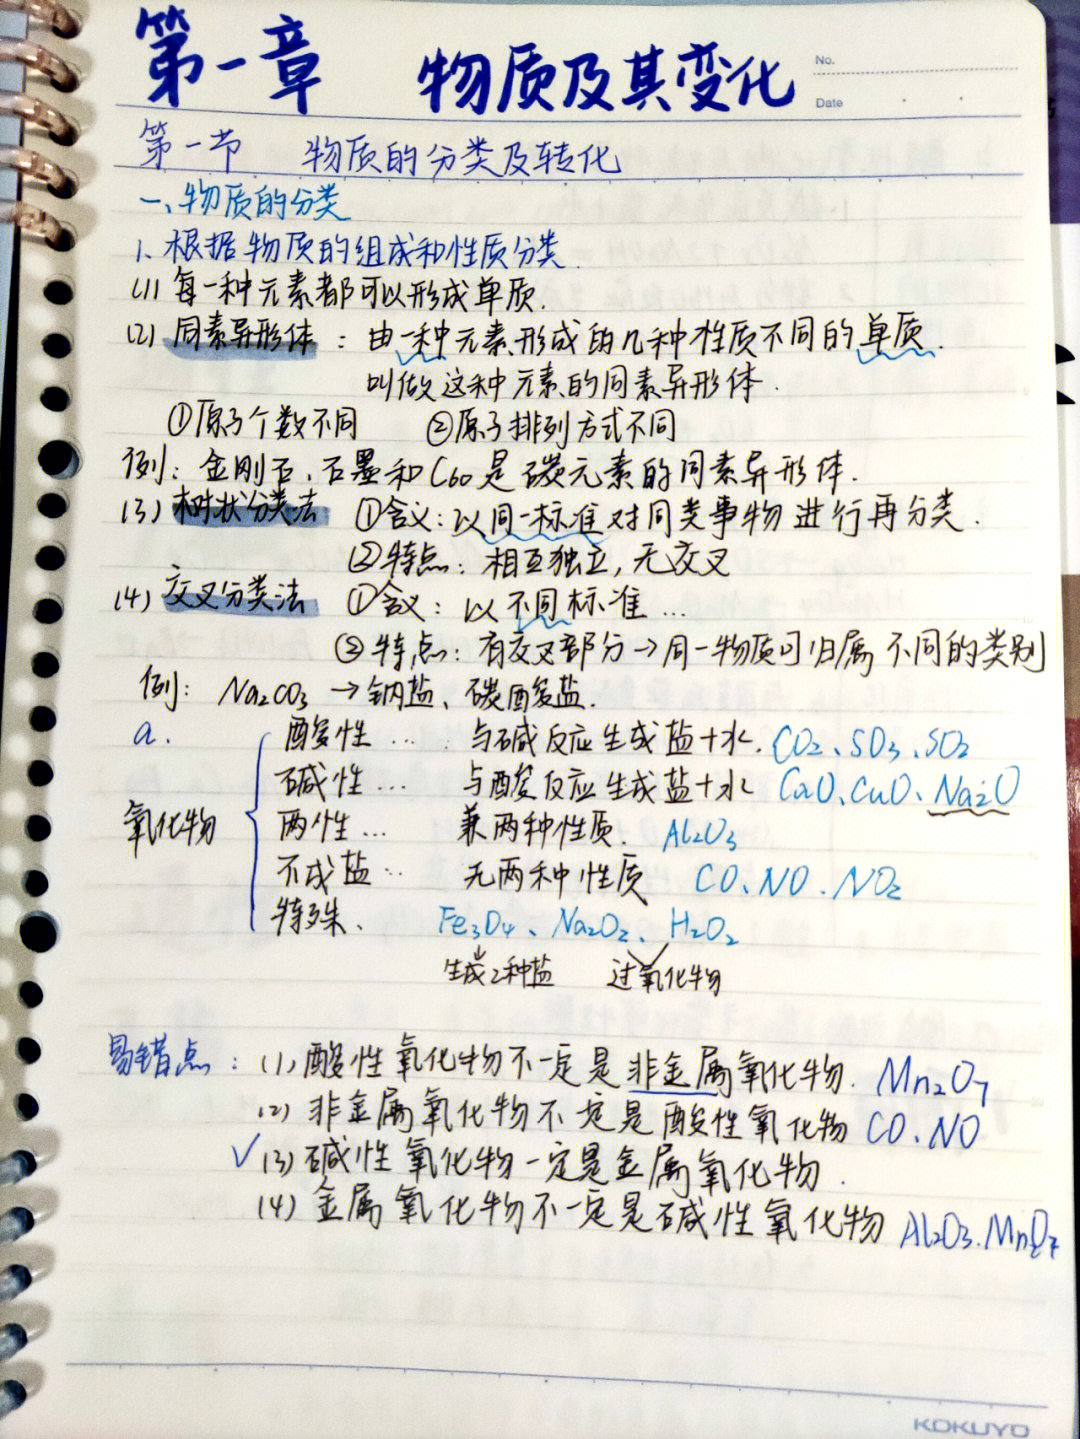 第一章 物质及其变化
No.
Date
第一节 物质的分类及转化
一、物质的分类
1、根据物质的组成和性质分类.
(1) 每一种元素都可以形成单质.
(2) 同素异形体：由一种元素形成的几种性质不同的单质.
叫做这种元素的同素异形体.
①原子个数不同 ②原子排列方式不同
例：金刚石、石墨和C60是碳元素的同素异形体.
(3) 树状分类法 ①含义：以同一标准对同类事物进行再分类.
②特点：相互独立，无交叉
(4) 交叉分类法 ①含义：以不同标准…
②特点：有交叉部分→同一物质可归属不同的类别
例：Na2CO3→钠盐、碳酸盐.
a. 酸性… 与碱反应生成盐+水. CO2、SO3、SO2
碱性… 与酸反应生成盐+水 CaO、CuO、Na2O
氧化物 两性… 兼两种性质. Al2O3
不成盐… 无两种性质 CO、NO、NO2
特殊、 Fe3O4、Na2O2、H2O2
生成2种盐 过氧化物
易错点：(1) 酸性氧化物不一定是非金属氧化物. Mn2O7
(2) 非金属氧化物不一定是酸性氧化物 CO、NO
✓(3) 碱性氧化物一定是金属氧化物.
(4) 金属氧化物不一定是碱性氧化物 Al2O3、Mn2O7
KOKUYO